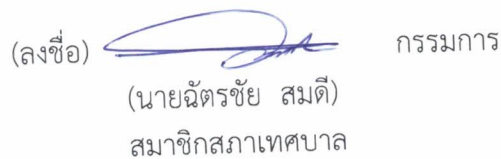 (ลงชื่อ) กรรมการ
(นายฉัตรชัย สมดี)
สมาชิกสภาเทศบาล